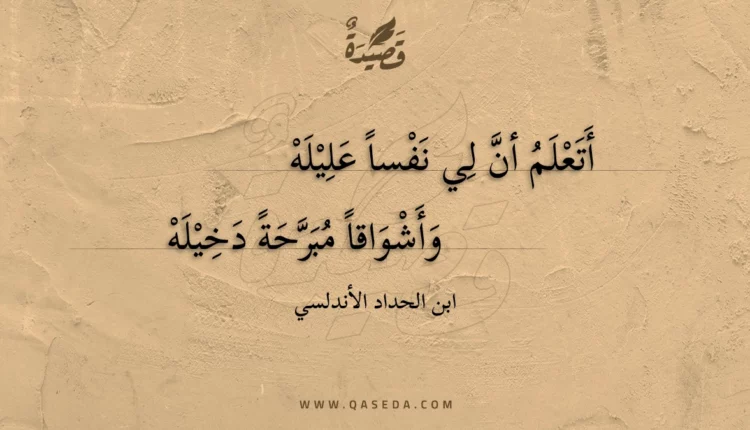 قَصِيْدَةٌ
أَتَعْلَمُ أنَّ لِي نَفْساً عَلِيْلَهْ
وَأَشْوَاقاً مُبَرَّحَةً دَخِيْلَهْ
ابن الحداد الأندلسي
WWW.QASEDA.COM